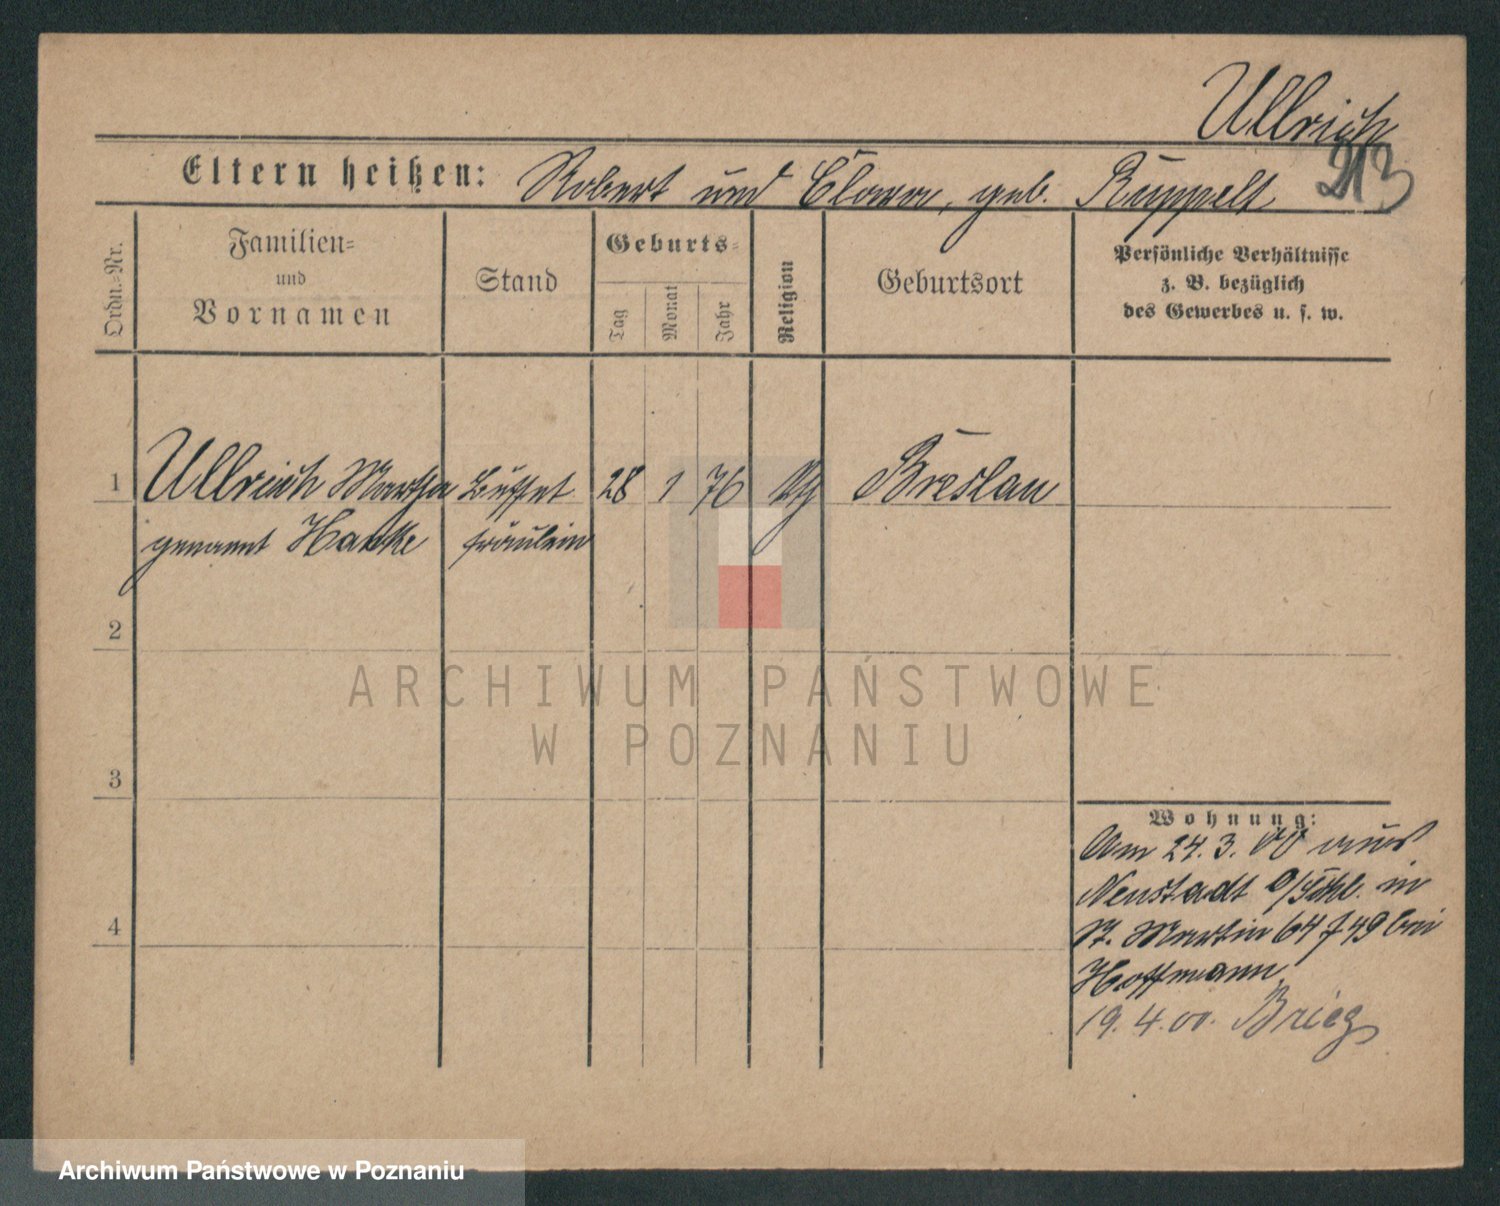 Ullrich
213
Eltern heißen: Robert und Clara, geb. Ruppelt
Ordn.=Nr.
Familien=
und
Vornamen
Stand
Geburts=
Tag
Monat
Jahr
Religion
Geburtsort
Persönliche Verhältnisse
z. B. bezüglich
des Gewerbes u. s. w.
1 Ullrich Martha Buffet 28 1 76 Breslau
genannt Hanke fräulein
2
ARCHIWUM PAŃSTWOWE
W POZNANIU
3
Wohnung:
Am 24. 3. 00 aus
Neustadt O/Schl. in
St. Martin 64 bei
4
Hoffmann
19. 4. 00. Brieg
Archiwum Państwowe w Poznaniu